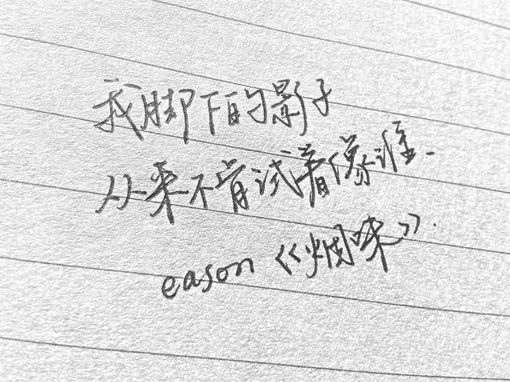 我脚下的影子
从来不肯试着像谁.
eason《烟味》.